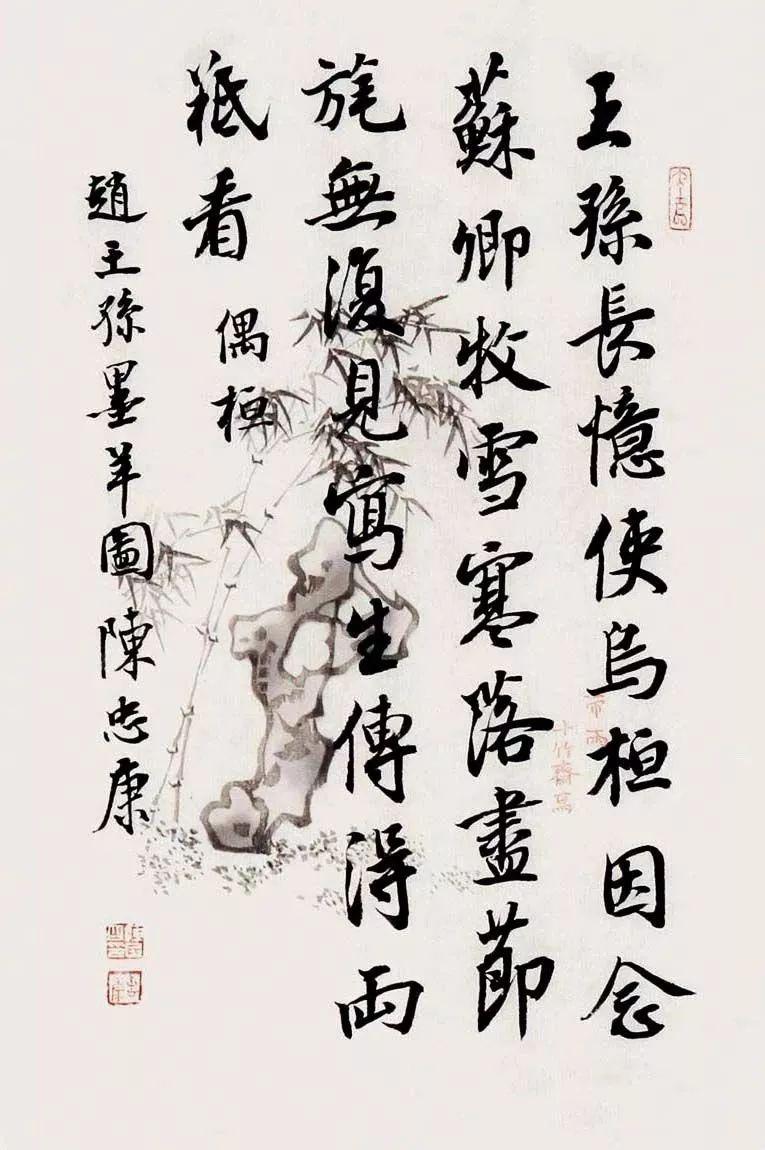 王孫長憶使烏桓因念
蘇卿牧雪寒落盡節
旄無復見寫生傳得両
羝看 偶桓
趙王孫墨羊圖陳忠康
十竹齋寫